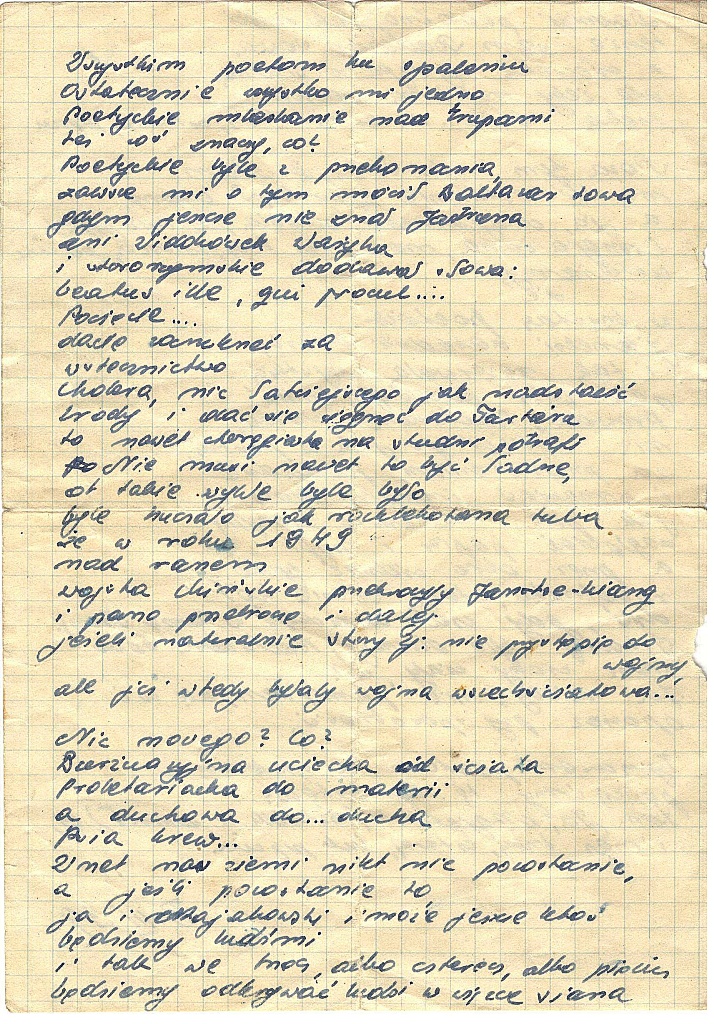 Wszystkim poetom ku spaleniu
Ostatecznie wszystko mi jedno
Poetyckie mlaskanie nad trupami
też coś znaczy, co?
Poetyckie byle z przekonania,
zawsze mi o tym mówił Baltazar Sowa
gdym jeszcze nie znał Jastruna
ani Widokówek Ważyka
i starorzymskie dodawał Sowa:
beatus ille, qui procul....
Poczekaj....
dacie zamknąć za
wstecznictwo
Cholera, nic łatwiejszego jak nadstawić
brody i dać się ciągnąć do Tartaru
to nawet na studni potrafi
Nie musi nawet to być ładne,
ot takie zwykłe byle było
byle huczało jak rozklekotana tuba
że w roku 1949
nad ranem
wojska chińskie przekroczyły Jantse-kiang
i pano i dalej
jeżeli naturalnie nie przystąpią do
wojny,
ale już wtedy byłaby wojna wszechświatowa...
Nic nowego? Co?
Burżuazyjna ucieczka od świata
Proletariacka do materii
a duchowa do... ducha
Psia krew...
Wnet na ziemi nikt nie pozostanie,
a jeśli pozostanie to
ja i Majakowski i może jeszcze ktoś
będziemy ludźmi
i tak we troje, albo czterech, albo pięciu
będziemy odkrywać ludzi w wiązce siana